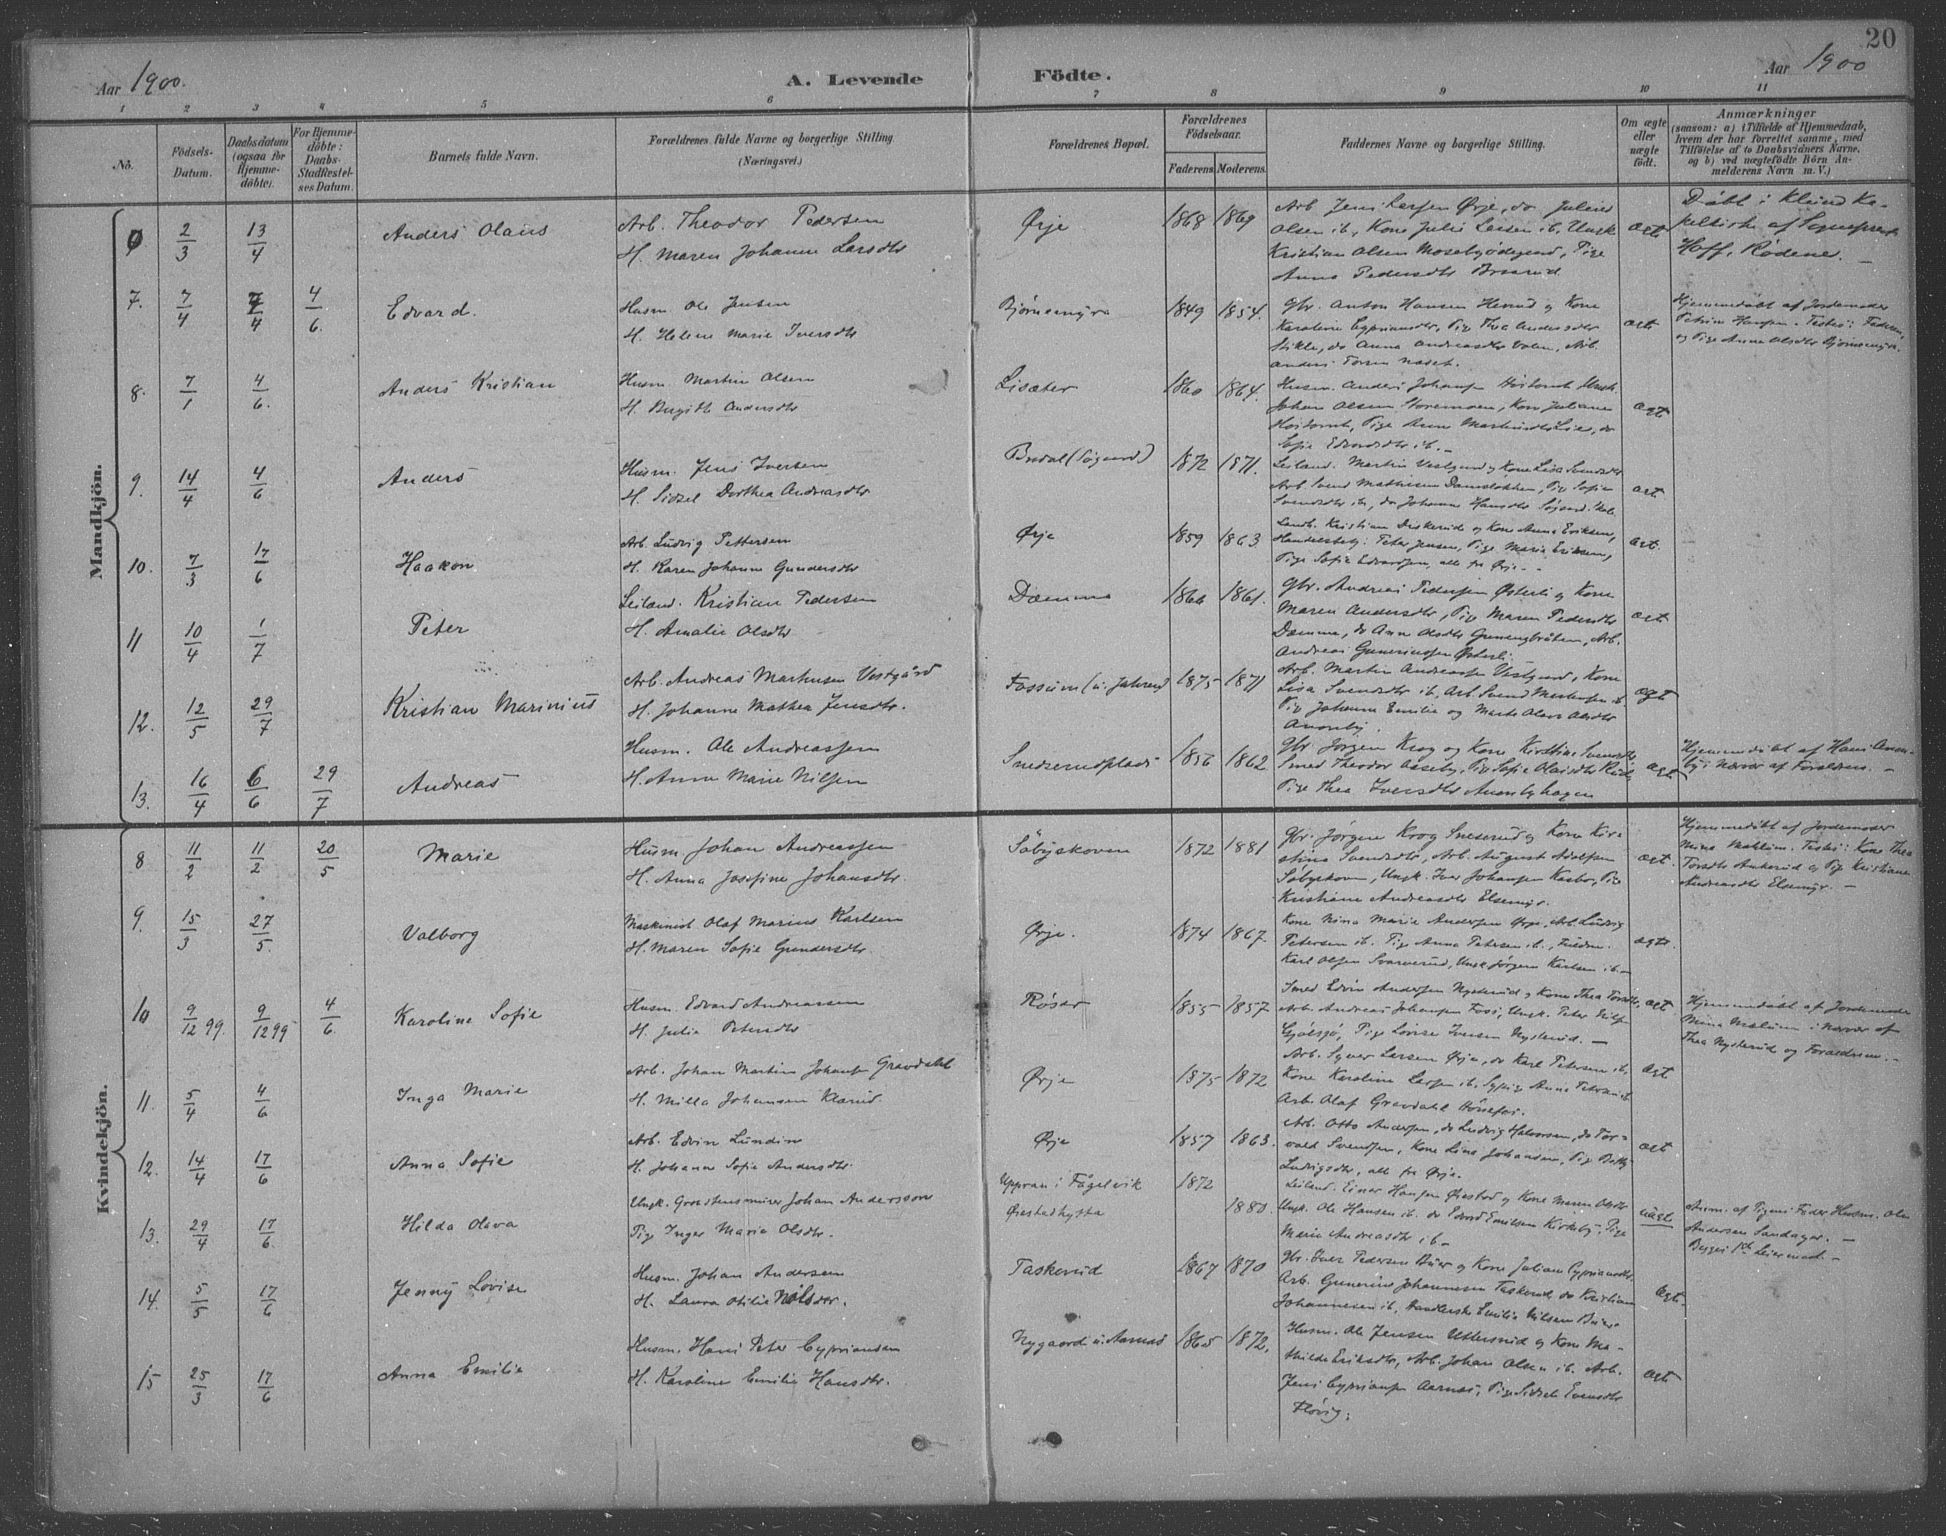 20
Aar 1900.
A. Levende Födte.
Aar 1900
1 2 3 4 5 6 7 8 9 10 11
No.
Födsels-Datum.
Daabsdatum (ogsaa for Hjemme-döbte).
For Hjemme-döbte: Daabs-Stadfæstel-ses Datum.
Barnets fulde Navn.
Forældrenes fulde Navne og borgerlige Stilling
(Næringsvei.)
Forældrenes Bopæl.
Forældrenes Födselsaar.
Faderens. Moderens.
Faddernes Navne og borgerlige Stilling.
Om ægte eller uægte födt.
Anmærkninger
(saasom: a) i Tilfælde af Hjemmedaab, hvem der har forrettet samme, med Tilföielse af to Daabsvidners Navne, og b) ved uægtefödte Börn An-melderens Navn m. V.)
Mandkjön.
2/3 13/4 Anders Olaus
Arb. Theodor Pedersen
H. Maren Johanne Larsdtr
Ørje 1868 1869
Arb. Jens Larsen Ørje, do Julius
Olsen ib, Kone Julie Larsen ib, Ungk.
Kristian Olsen Mosebyødegaard, Pige
Anna Pedersdtr
ægte
Døbt i Klund Ka-
pelkirke af Sognepræst
Hoff, Rødenes. —
7. 7/4 7/4 4/6. Edvard.
Husm. Ole Jensen
H. Helene Marie Iversdtr
Bjørnsmyra 1849 1854.
Gbr. Anton Hansen og Kone
Karoline Cypriansdtr, Pige Thea Andersdtr
Stikle, do Anna Andreasdtr Volen, Arb.
Anders
ægt.
Hjemmedøbt af Jordemoder
Petrine Hansen. Testes: Faderen,
og Pige Anne Olsdtr Bjørnsmyra.
8. 7/1 4/6. Anders Kristian
Husm. Martin Olsen
H. Birgitte Andersdtr
Lisæter 1860 1864.
Husm. Anders Johansen Høitomt, Ungk.
Johan Olsen Storemoen, Kone Juliane
Høitomt, Pige Anne do
Sofie Edvardsdtr ib. —
ægt
9. 14/4 4/6 Anders
Husm. Jens Iversen
H. Sidsel Dorthea Andreasdtr
Budal (Søgaard) 1872 1871.
Leiland. Martin Vestgaard og Kone Lisa Svendsdtr
Arb. Svend Mathisen Damsløkken, Pige Sofie
Svendsdtr ib, do Johanne Hansdtr
ægt.
10. 7/3 17/6 Haakon
Arb. Ludvig Pettersen
H. Karen Johanne Gundersdtr
Ørje 1859 1863
Landh. Kristian Diskerud og Kone Anna Eriksen,
Handelsbetj. Peter Jensen, Pige Marie Eriksen,
Pige Sofie Edvardsen, alle fra Ørje. —
ægt.
11 10/4 1/7 Peter
Leiland. Kristian Pedersen
H. Amalie Olsdtr
Dæmma 1866 1861.
Gbr. Andreas Pedersen Østerli og Kone
Maren Andersdtr, Pige Maren Pedersdtr
Dæmma, do Anne Olsdtr Arb.
Andreas Gunerussen Østerli.
ægt.
12. 12/5 29/7 Kristian Marinius
Arb. Andreas Martinsen Vestgård
H. Johanne Mathea Jensdtr.
Fossum 1875 1871
Arb. Martin Andreassen Vestgaard, Kone
Lisa Svendsdtr ib, Arb. Svend Martinsen ib.
Pige Johanne Emilie og Marte Olava Olsdtr
ægt
13. 16/4 6/6 29/7 Andreas
Husm. Ole Andreassen
H. Anne Marie Nilsen
Snesrudplads 1856 1862.
Gbr. Jørgen Krog og Kone Kirstine Svendsdtr
Smed Theodor Asseby, Pige Sofie Olausdtr
Pige Thea Iversdtr
ægt
Hjemmedøbt af Hans
i Nærvær af Forældrene. —
Kvindekjön.
8 11/2 11/2 20/5 Marie
Husm Johan Andreassen
H. Anna Josefine Johansdtr.
Søbyskoven 1872 1881
Gbr. Jørgen Krog Sneserud og Kone Kir-
stina Svendsdtr, Arb. August Adolfsen
Søbyskoven, Ungk. Iver Johansen Kasbo, Pige
Kristiane Andreasdtr Elsemyr.
ægt.
Hjemmedøbt af Jordemoder
Mina Mahlum. Testes: Kone Thea
og Pige Kristiane
Andreasdtr Elsemyr. —
9. 15/3 27/5. Valborg
Maskinist Olaf Marius Karlsen
H. Maren Sofie Gundersdtr.
Ørje. 1874 1867.
Kone Nina Marie Andersen Ørje, Arb. Ludvig
Petersen ib. Pige Anna Petersen ib.,
Karl Olsen Svarverud, Ungk. Jørgen Karlsen ib. —
ægte.
10 9/12 99. 9/12 99 4/6. Karoline Sofie
Husm. Edvard Andreassen
H. Julie Petersdtr
Røser 1855 1857.
Smed Edvin Andersen Nysterud og Kone Thea
Arb. Andreas Johansen Foss, Ungk. Peter
Gjølsjø, Pige Lovise Iversen Nysterud. —
ægt
Hjemmedøbt af Jordemoder
Mina Mælum i Nærvær af
Thea Nysterud og Forældrene. —
11. 5/4 4/6 Inga Marie
Arb. Johan Martin Johansen Gravdahl
H. Milla Johansen
Ørje 1875 1872
Arb. Syver Larsen Ørje, do Karl Petersen ib,
Kone Karoline Larsen ib, Anna Petersen ib.
Arb. Olaf Gravdahl Hønefos.
ægt
12. 14/4 17/6 Anna Sofie
Arb. Edvin Lundin
H. Johanne Sofie Andersdtr.
Ørje 1857 1863.
Arb. Otto Andersen, do Ludvig Halvorsen, do Tor-
vald Svendsen, Kone Lina Johansen, Pige
Ludvigsdtr, alle fra Ørje.
ægt
13. 29/4 17/6. Hilda Olava
Ungk. Grovstensminer Johan Andersson
Pige Inger Marie Olsdtr.
Uppran i Fågelvik 1872
Ørestadhytta 1880.
Leiland. Einar Hansen Ørestad og Kone Maren Olsdtr
Ungk. Ole Hansen ib. do Edvard Emilsen Kirkeby, Pige
Marie Andreasdtr ib. —
uægte
Anm. af Pigens Fader Husm. Ole
Andersen Sandager. —
Begges 1ste Leiermaal. —
14. 5/5 17/6 Jenny Lovise
Husm. Johan Andersen
H. Laura Otilie Nilsdtr.
Taskerud 1867 1870
Gbr. Iver Pedersen Buer og Kone Juliane Cypriansdtr.
Arb. Gunerius Johannesen Taskerud, do Kristian
Johannesen ib, Emilie Nilsen Buer.
ægt.
15 25/3 17/6 Anna Emilie
Husm. Hans Peter Cypriansen
H. Karoline Emilie Hansdtr.
Nygaard u. Aarnæs 1865 1872.
Husm. Ole Jensen og Kone Ma-
thilde Eriksdtr, Arb. Johan Olsen ib. Arb.
Jens Cypriansen Aarnæs, Pige Sidsel Evensdtr
Fløvig.
ægt.